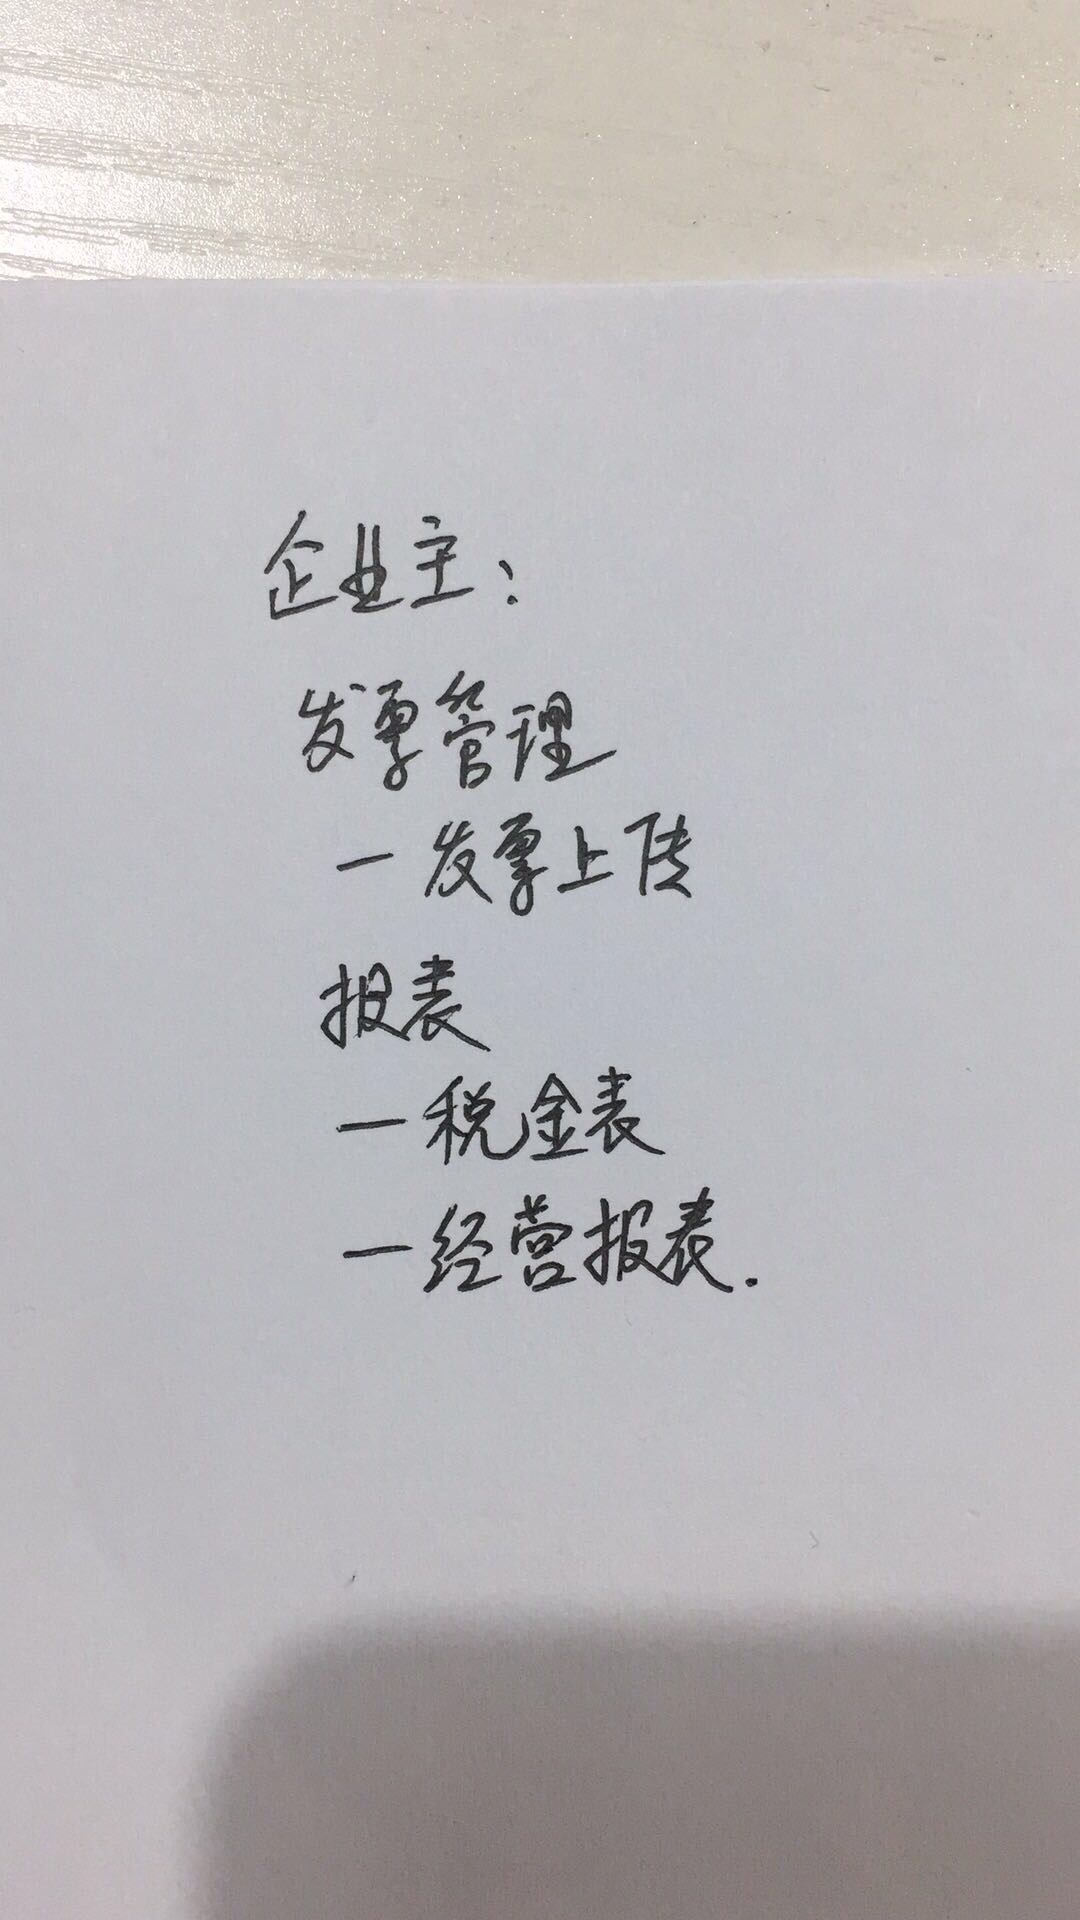 企业主：
发票管理
一发票上传
报表
一税金表
一经营报表.